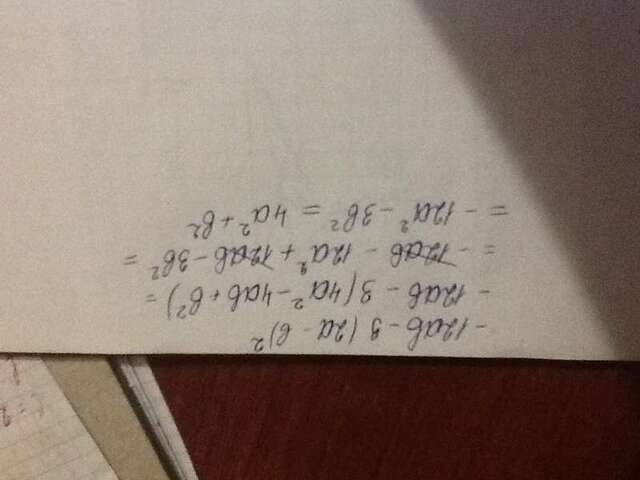 -12ab - 3 (2a - b)²
-12ab - 3(4a² - 4ab + b²) =
= -12ab - 12a² + 12ab - 3b² =
= -12a² - 3b² = 4a² + b²